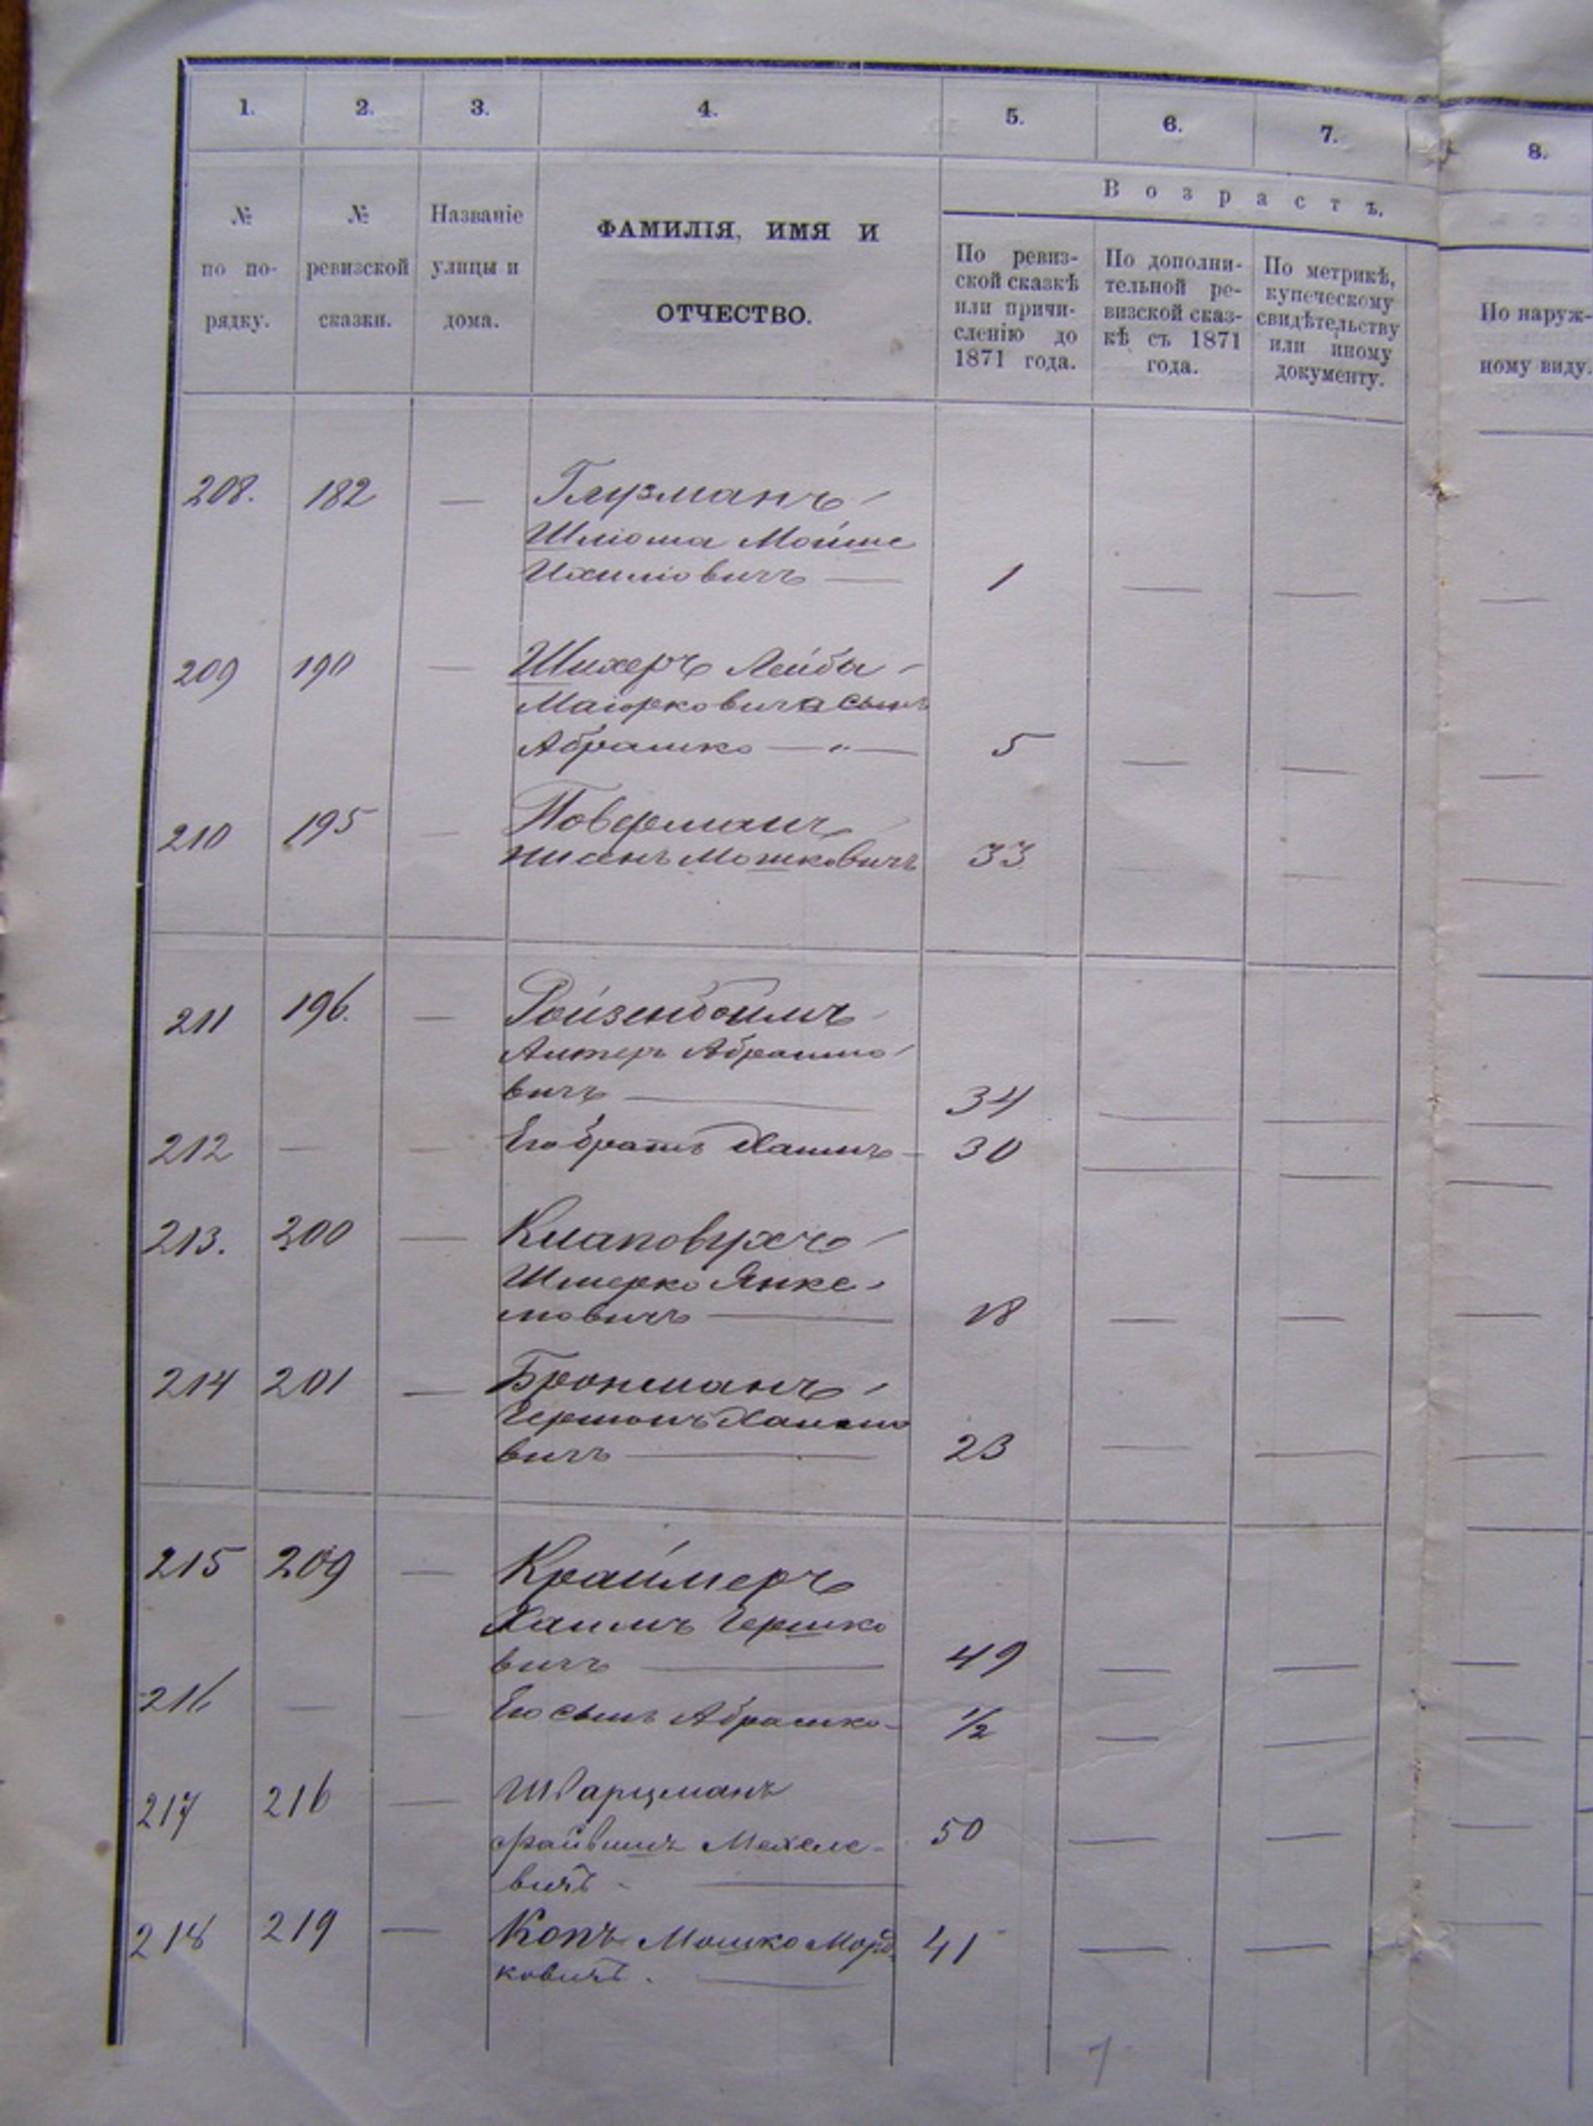 1. 2. 3. 4. 5. 6. 7. 8.
В о з р а с т ъ.
№ по по-рядку.
№ ревизской сказки.
Названіе улицы и дома.
ФАМИЛІЯ, ИМЯ И
ОТЧЕСТВО.
По ревиз-
ской сказкѣ
или причи-
сленію до
1871 года.
По дополни-
тельной ре-
визской сказ-
кѣ съ 1871
года.
По метрикѣ,
купеческому
свидѣтельству
или иному
документу.
По наруж-
ному виду.
208. 182 — Глузманъ
Шліома Мойше
Ихиліовичъ — 1 — — —
209 190 — Шихеръ Лейбы
Маіорковича сынъ
Абрашко — " — 5 — — —
210 195 — Поверманъ
Нисанъ Мошковичъ 33 — — —
211 196. — Ройзенбоймъ
Алтеръ Абрамо-
вичъ — 34 — — —
212 — — Его братъ Хаимъ — 30 — — —
213. 200 — Клаповухъ
Шмерко Янке-
лиовичъ — 18 — — —
214 201 — Бронманъ
Гершонъ Хаимо
вичъ — 23 — — —
215 209 — Краймеръ
Хаимъ Гершко
вичъ — 49 — — —
216 — — Его сынъ Абрашко — 1/2 — — —
217 216 — Шварцманъ
Файвишъ Мехеле-
вичъ — 50 — — —
218 219 — Копъ Мошко Морд
ковичъ. — 41 — — —